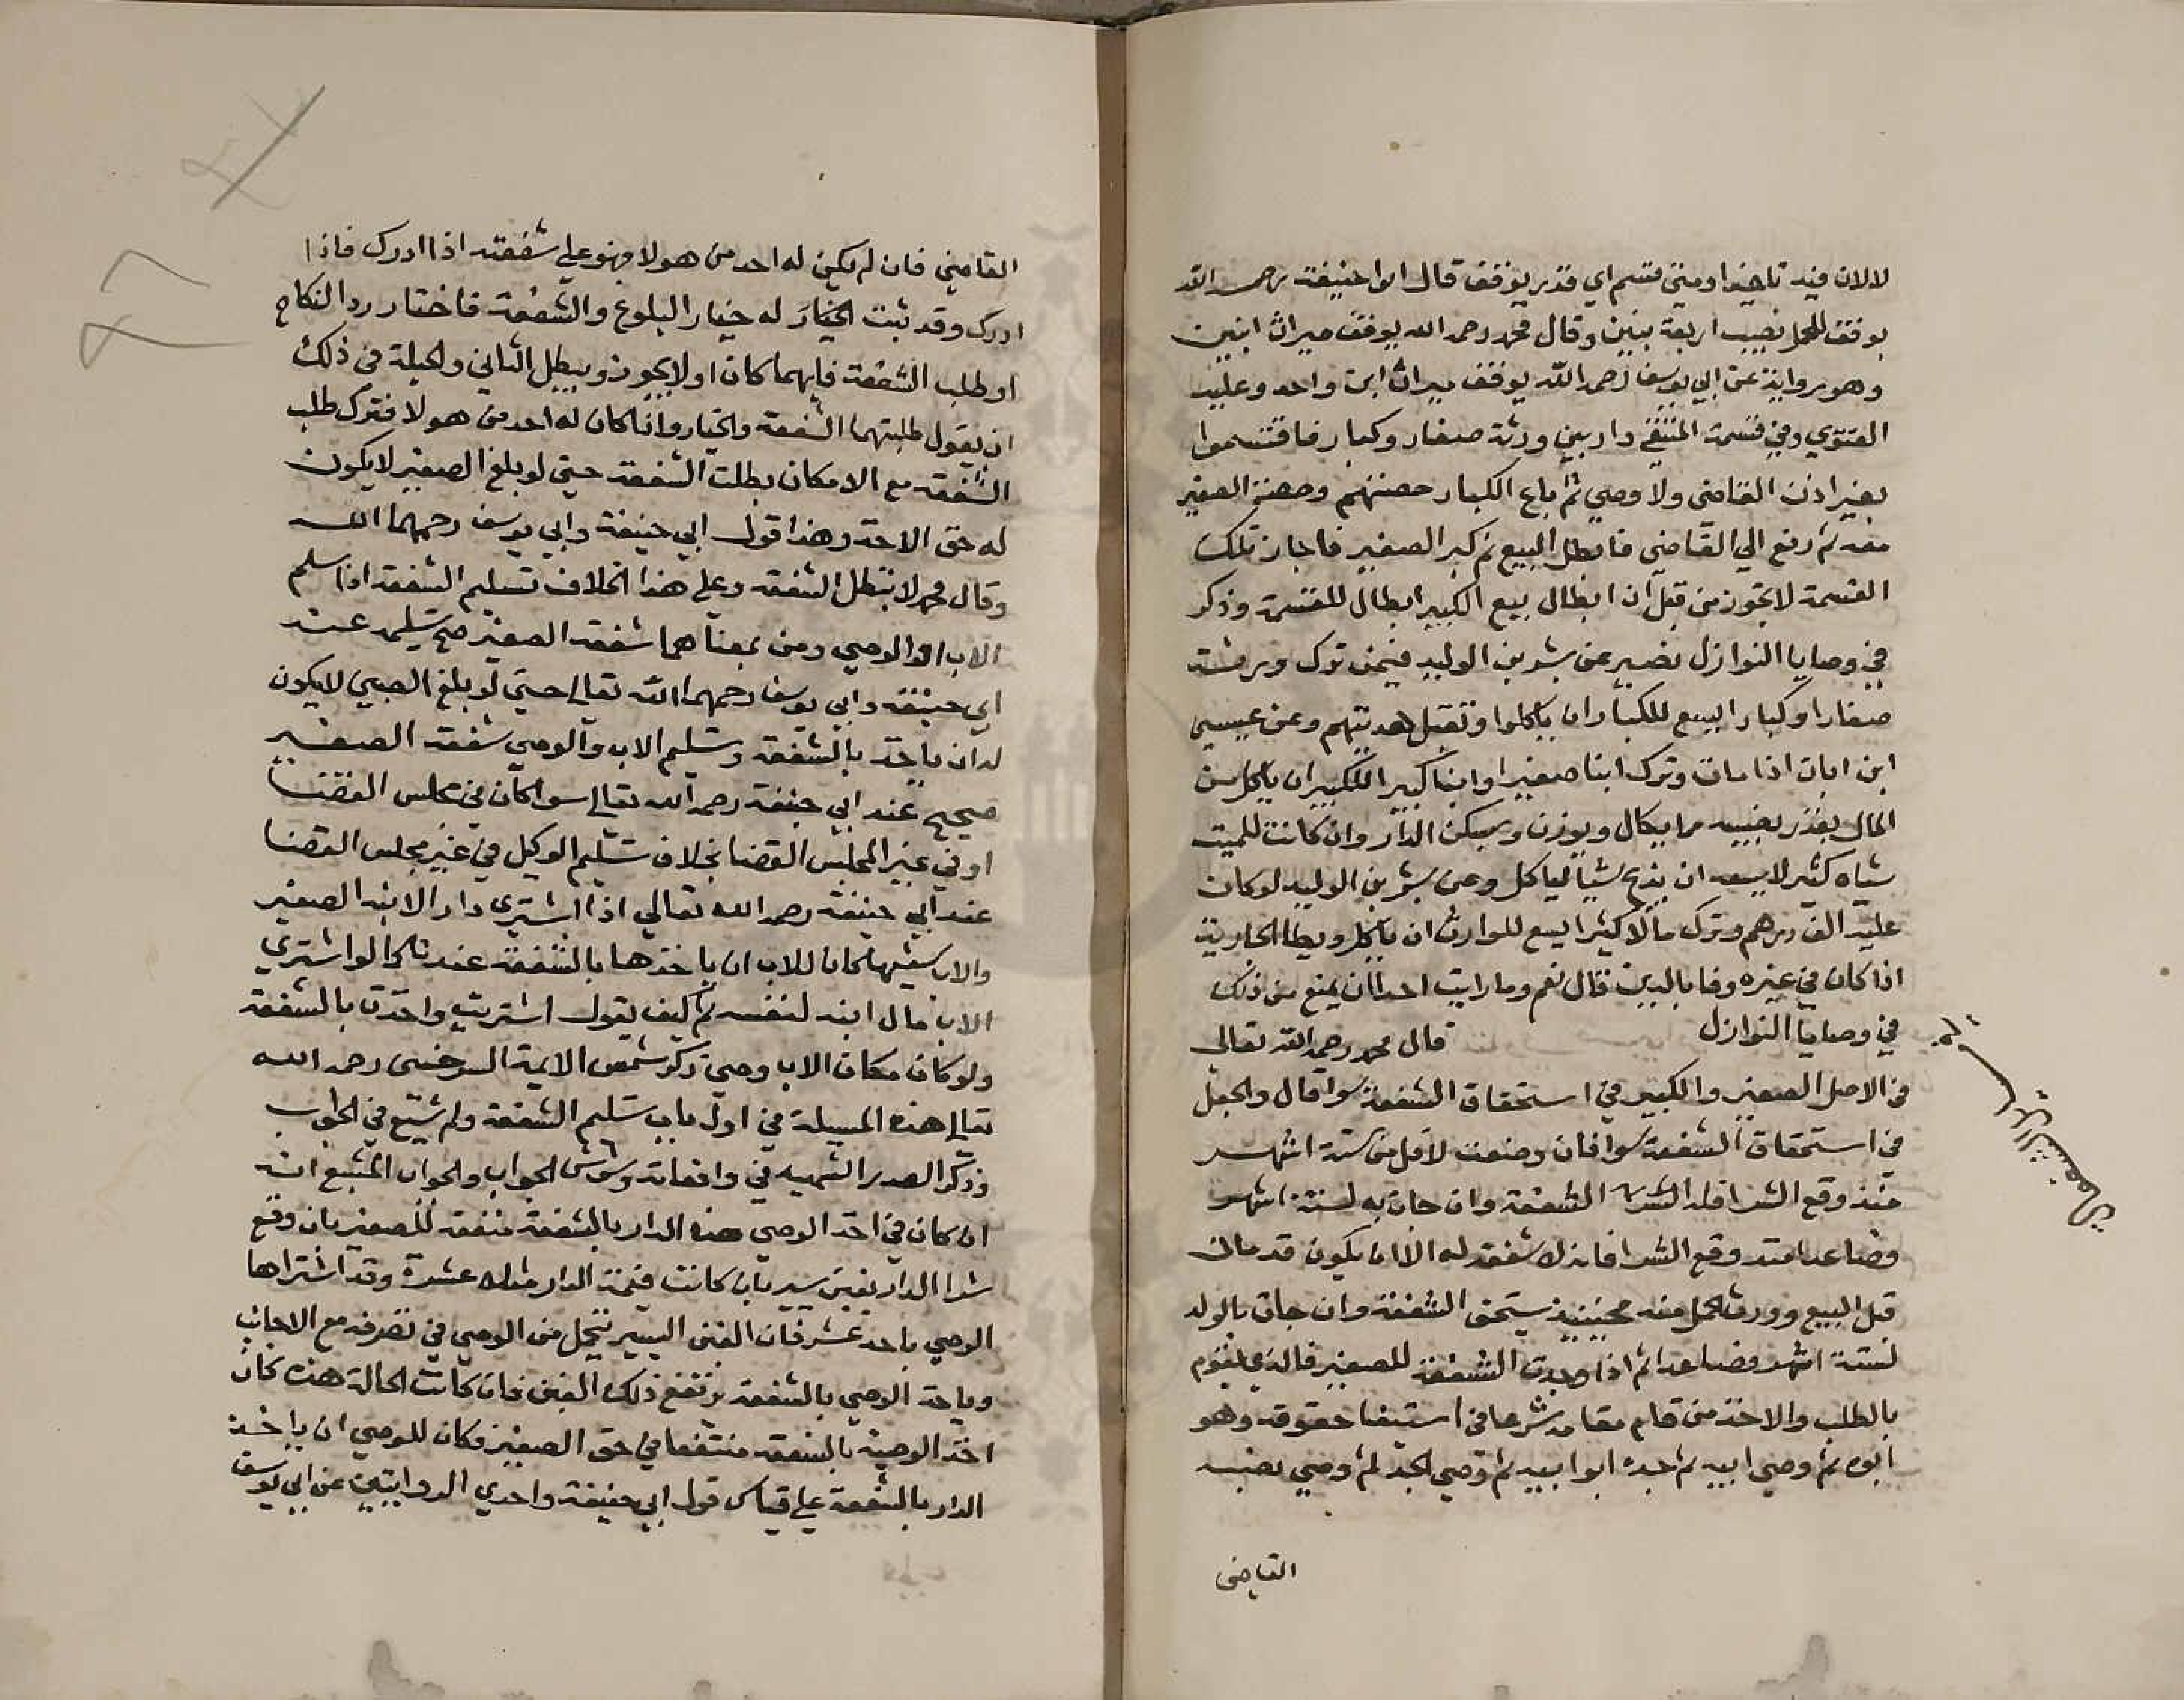 لالان فيه تاخيرا ومتى قسم اي قدر يوقف قال ابوا حنيفة رحمه الله
يوقف للحمل نصيب اربعة بنين وقال محمد رحمه الله يوقف ميراث ابنين
وهو رواية عن ابي يوسف رحمه الله يوقف ميراث ابن واحد وعليه
الفتوي وفي قسمة المنتقي دار بين ورثة صغار وكبار فاقتسموا
بغير اذن القاضي ولا وصي ثم باع الكبار حصتهم وحصة الصغير
معه ثم رفع الي القاضي فابطل البيع ثم كبر الصغير فاجاز تلك
القسمة لا تجوز من قبل ان ابطال بيع الكبير ابطال للقسمة وذكر
في وصايا النوازل نصير عن بشر بن الوليد فيمن ترك ورثة
صغارا وكبارا ليسع للكبار ان ياكلوا وتقبل هديتهم وعن عيسي
ابن ابان اذا مات وترك ابنا صغيرا وابنا كبيرا للكبير ان ياكل من
المال بقدر نصيبه مما يكال ويوزن ويسكن الدار وان كانت للميت
شياه كثير لا يسعه ان يذبح شيا لياكل وعن بشر بن الوليد لو كان
عليه الف درهم وترك مالا كثيرا ليسع للوارث ان ياكل ويطا الجارية
اذا كان في غيره وفا بالدين قال نعم وما رايت احدا ان يمنع من ذلك
في وصايا النوازل قال محمد رحمه الله تعالى
في الاصل الصغير والكبير في استحقاق الشفعة سوا قال والحمل
في استحقاق الشفعة سوا فان وضعت لاقل من ستة اشهر
منذ وقع الشرا فله الشفعة وان جات به لستة اشهر
وصاعدا منذ وقع الشرا فانه لا شفعة له الا ان يكون قد مات
قبل البيع وورث الحمل منه فحينيذ يستحق الشفعة وان جات بالولد
لستة اشهر فصاعدا ثم اذا وجبت الشفعة للصغير فالذي يقوم
بالطلب والاخذ من قام مقامه شرعا في استيفا حقوقه وهو
ابوه ثم وصي ابيه ثم جده ابوا ابيه ثم وصي الجد ثم وصي نصبه
القاضي
القاضي فان لم يكن له احد من هولا فهو علي شفعته اذا ادرك فاذا
ادرك وقد ثبت الخيار له خيار البلوغ والشفعة فاختار رد النكاح
او طلب الشفعة فايهما كان اولا يجوز ويبطل الثاني والحيلة في ذلك
ان يقول طلبتهما الشفعة والخيار واذا كان له احد من هولا فترك طلب
الشفعة مع الامكان بطلت الشفعة حتي لو بلغ الصغير لا يكون
له حق الاخذ وهذا قول ابي حنيفة وابي يوسف رحمهما الله
وقال محمد لا تبطل الشفعة وعلي هذا الخلاف تسليم الشفعة اذا سلم
الاب او الوصي ومن بمعناهما شفعة الصغير صح تسليمه عند
ابي حنيفة وابي يوسف رحمهما الله تعالي حتي لو بلغ الصبي لا يكون
له ان ياخذ بالشفعة وتسليم الاب والوصي شفعة الصغير
صحيح عند ابي حنيفة رحمه الله تعالي سوا كان في مجلس القضا
او في غير المجلس القضا بخلاف تسليم الوكيل في غير مجلس القضا
عند ابي حنيفة رحمه الله تعالي اذا اشتري دار الابنه الصغير
والاب شفيعها كان للاب ان ياخذها بالشفعة عندنا كما لو اشتري
الاب مال ابنه لنفسه ثم كيف يقول اشتريت واخذت بالشفعة
ولو كان مكان الاب وصي ذكر شمس الايمة السرخسي رحمه الله
تعالي هذه المسيلة في اول باب تسليم الشفعة ولم شبع في الجواب
وذكر الصدر الشهيد في واقعاته وشوش الجواب والجواب المشبع انه
ان كان في اخذ الوصي هذه الدار بالشفعة منفعة للصغير بان وقع
شرا الدار بغبن يسير بان كانت قيمة الدار مثلا عشرة وقد اشتراها
الوصي باحد عشر فان الغبن اليسير يتحمل من الوصي في تصرفه مع الاجانب
وياخذ الوصي بالشفعة يرتفع ذلك الغبن فان كانت الحالة هذه كان
اخذ الوصية بالشفعة منتفعا في حق الصغير فكان للوصي ان ياخذ
الدار بالشفعة علي قياس قول ابي حنيفة واحدي الروايتين عن ابي يوسف